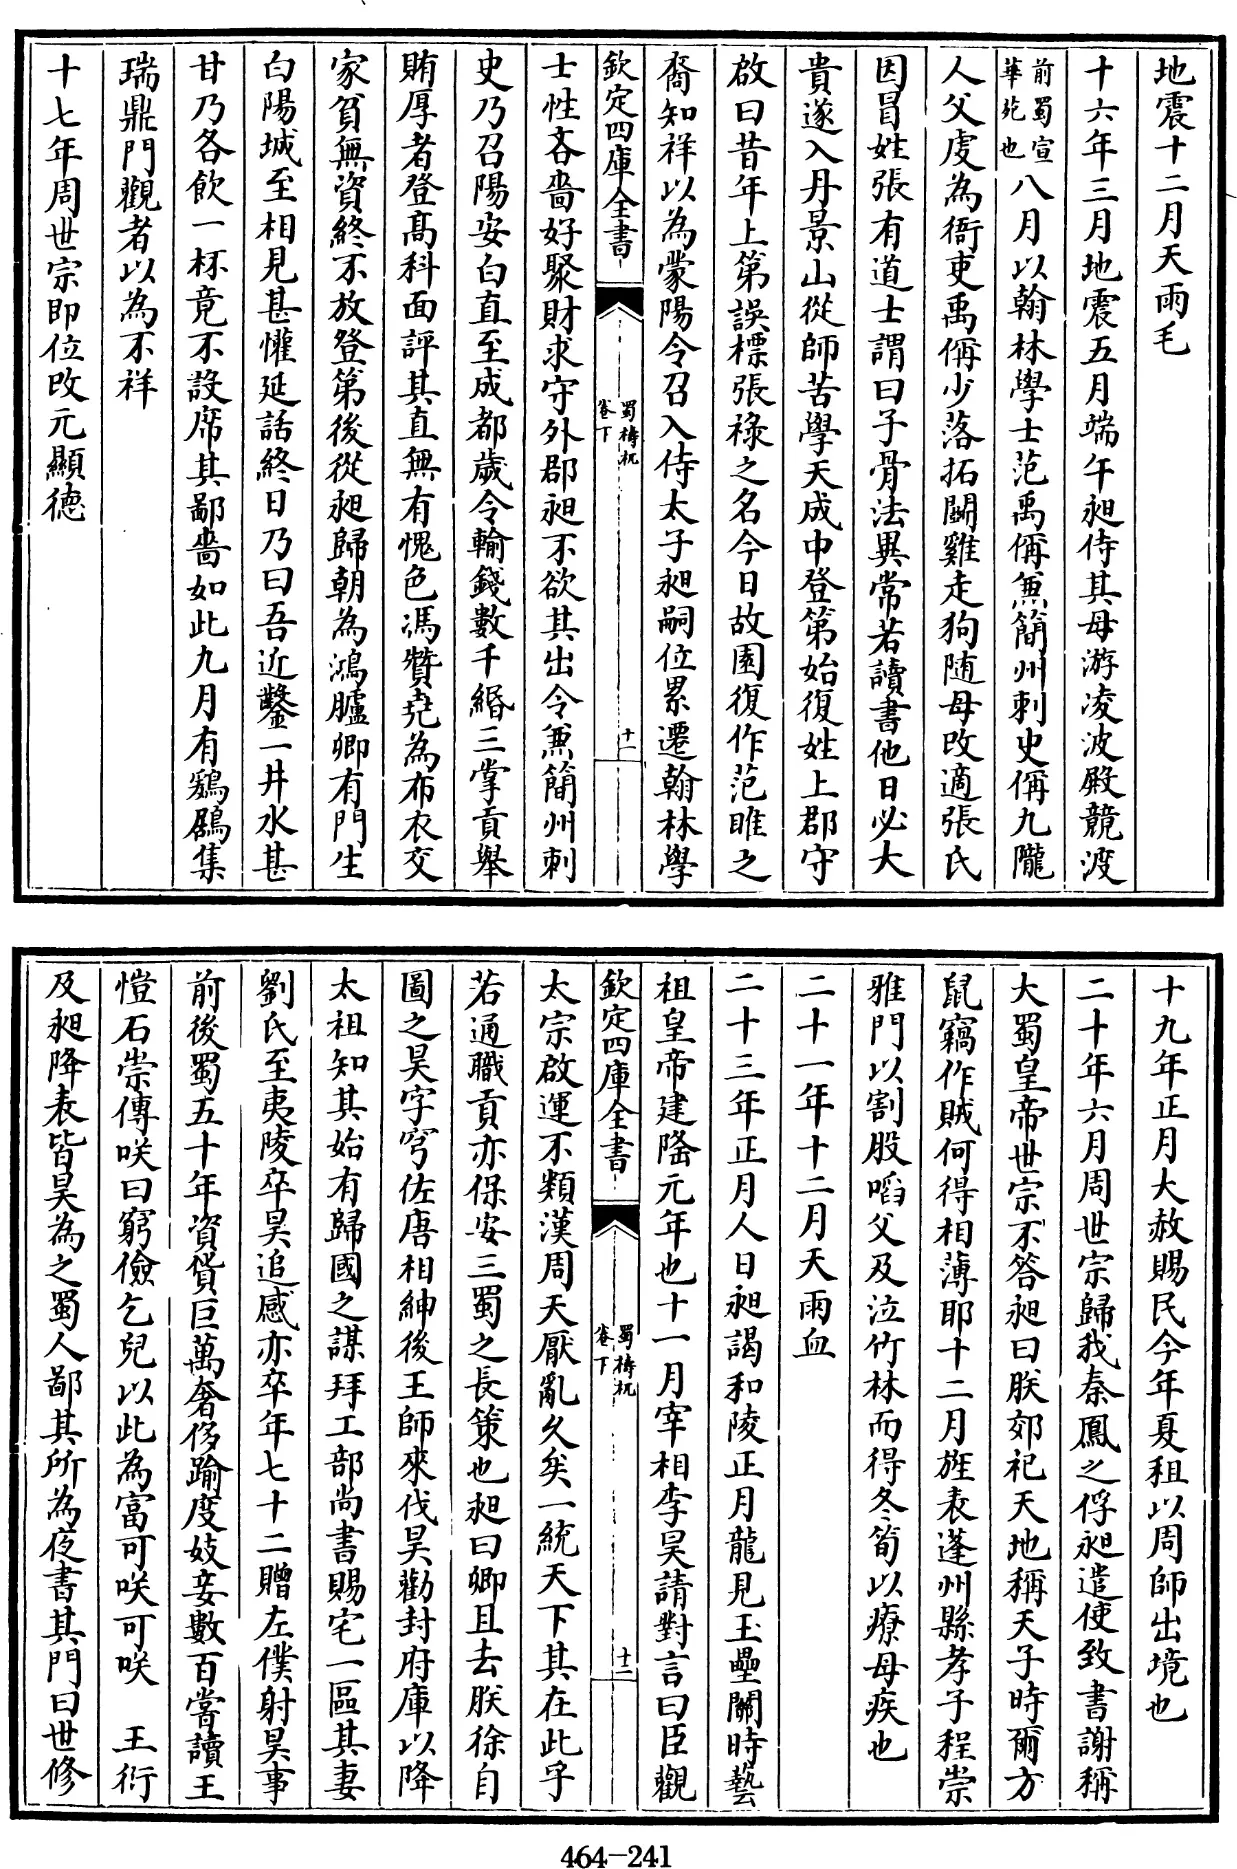 地震十二月天雨毛
十六年三月地震五月端午昶侍其母游凌波殿競渡
前蜀宣華苑也八月以翰林學士范禹偁兼簡州刺史偁九隴
人父虔為衙吏禹偁少落拓鬭雞走狗随母改適張氏
因冒姓張有道士謂曰子骨法異常若讀書他日必大
貴遂入丹景山從師苦學天成中登第始復姓上郡守
啟曰昔年上第誤標張祿之名今日故園復作范睢之
裔知祥以為蒙陽令召入侍太子昶嗣位累遷翰林學
欽定四庫全書
蜀檮杌
卷下
十一
士性吝嗇好聚財求守外郡昶不欲其出令兼簡州刺
史乃召陽安白直至成都歲令輸錢數千緡三掌貢舉
賄厚者登高科面評其直無有愧色馮贊堯為布衣交
家貧無資終不放登第後從昶歸朝為鴻臚卿有門生
白陽城至相見甚懽延話終日乃曰吾近鑿一井水甚
甘乃各飲一杯竟不設席其鄙嗇如此九月有鷄鶋集
瑞鼎門觀者以為不祥
十七年周世宗即位改元顯德
十九年正月大赦賜民今年夏租以周師出境也
二十年六月周世宗歸我秦鳳之俘昶遣使致書謝稱
大蜀皇帝世宗不答昶曰朕郊祀天地稱天子時爾方
鼠竊作賊何得相薄耶十二月旌表蓬州縣孝子程崇
雅門以割股啗父及泣竹林而得冬筍以療母疾也
二十一年十二月天雨血
二十三年正月人日昶謁和陵正月龍見玉壘關時藝
祖皇帝建隆元年也十一月宰相李昊請對言曰臣觀
欽定四庫全書
蜀檮杌
卷下
十二
太宗啟運不類漢周天厭亂久矣一統天下其在此乎
若通職貢亦保安三蜀之長策也昶曰卿且去朕徐自
圖之昊字穹佐唐相紳後王師來伐昊勸封府庫以降
太祖知其始有歸國之謀拜工部尚書賜宅一區其妻
劉氏至夷陵卒昊追感亦卒年七十二贈左僕射昊事
前後蜀五十年資貨巨萬奢侈踰度妓妾數百嘗讀王
愷石崇傳咲曰窮儉乞兒以此為富可咲可咲　王衍
及昶降表皆昊為之蜀人鄙其所為夜書其門曰世修
464-241